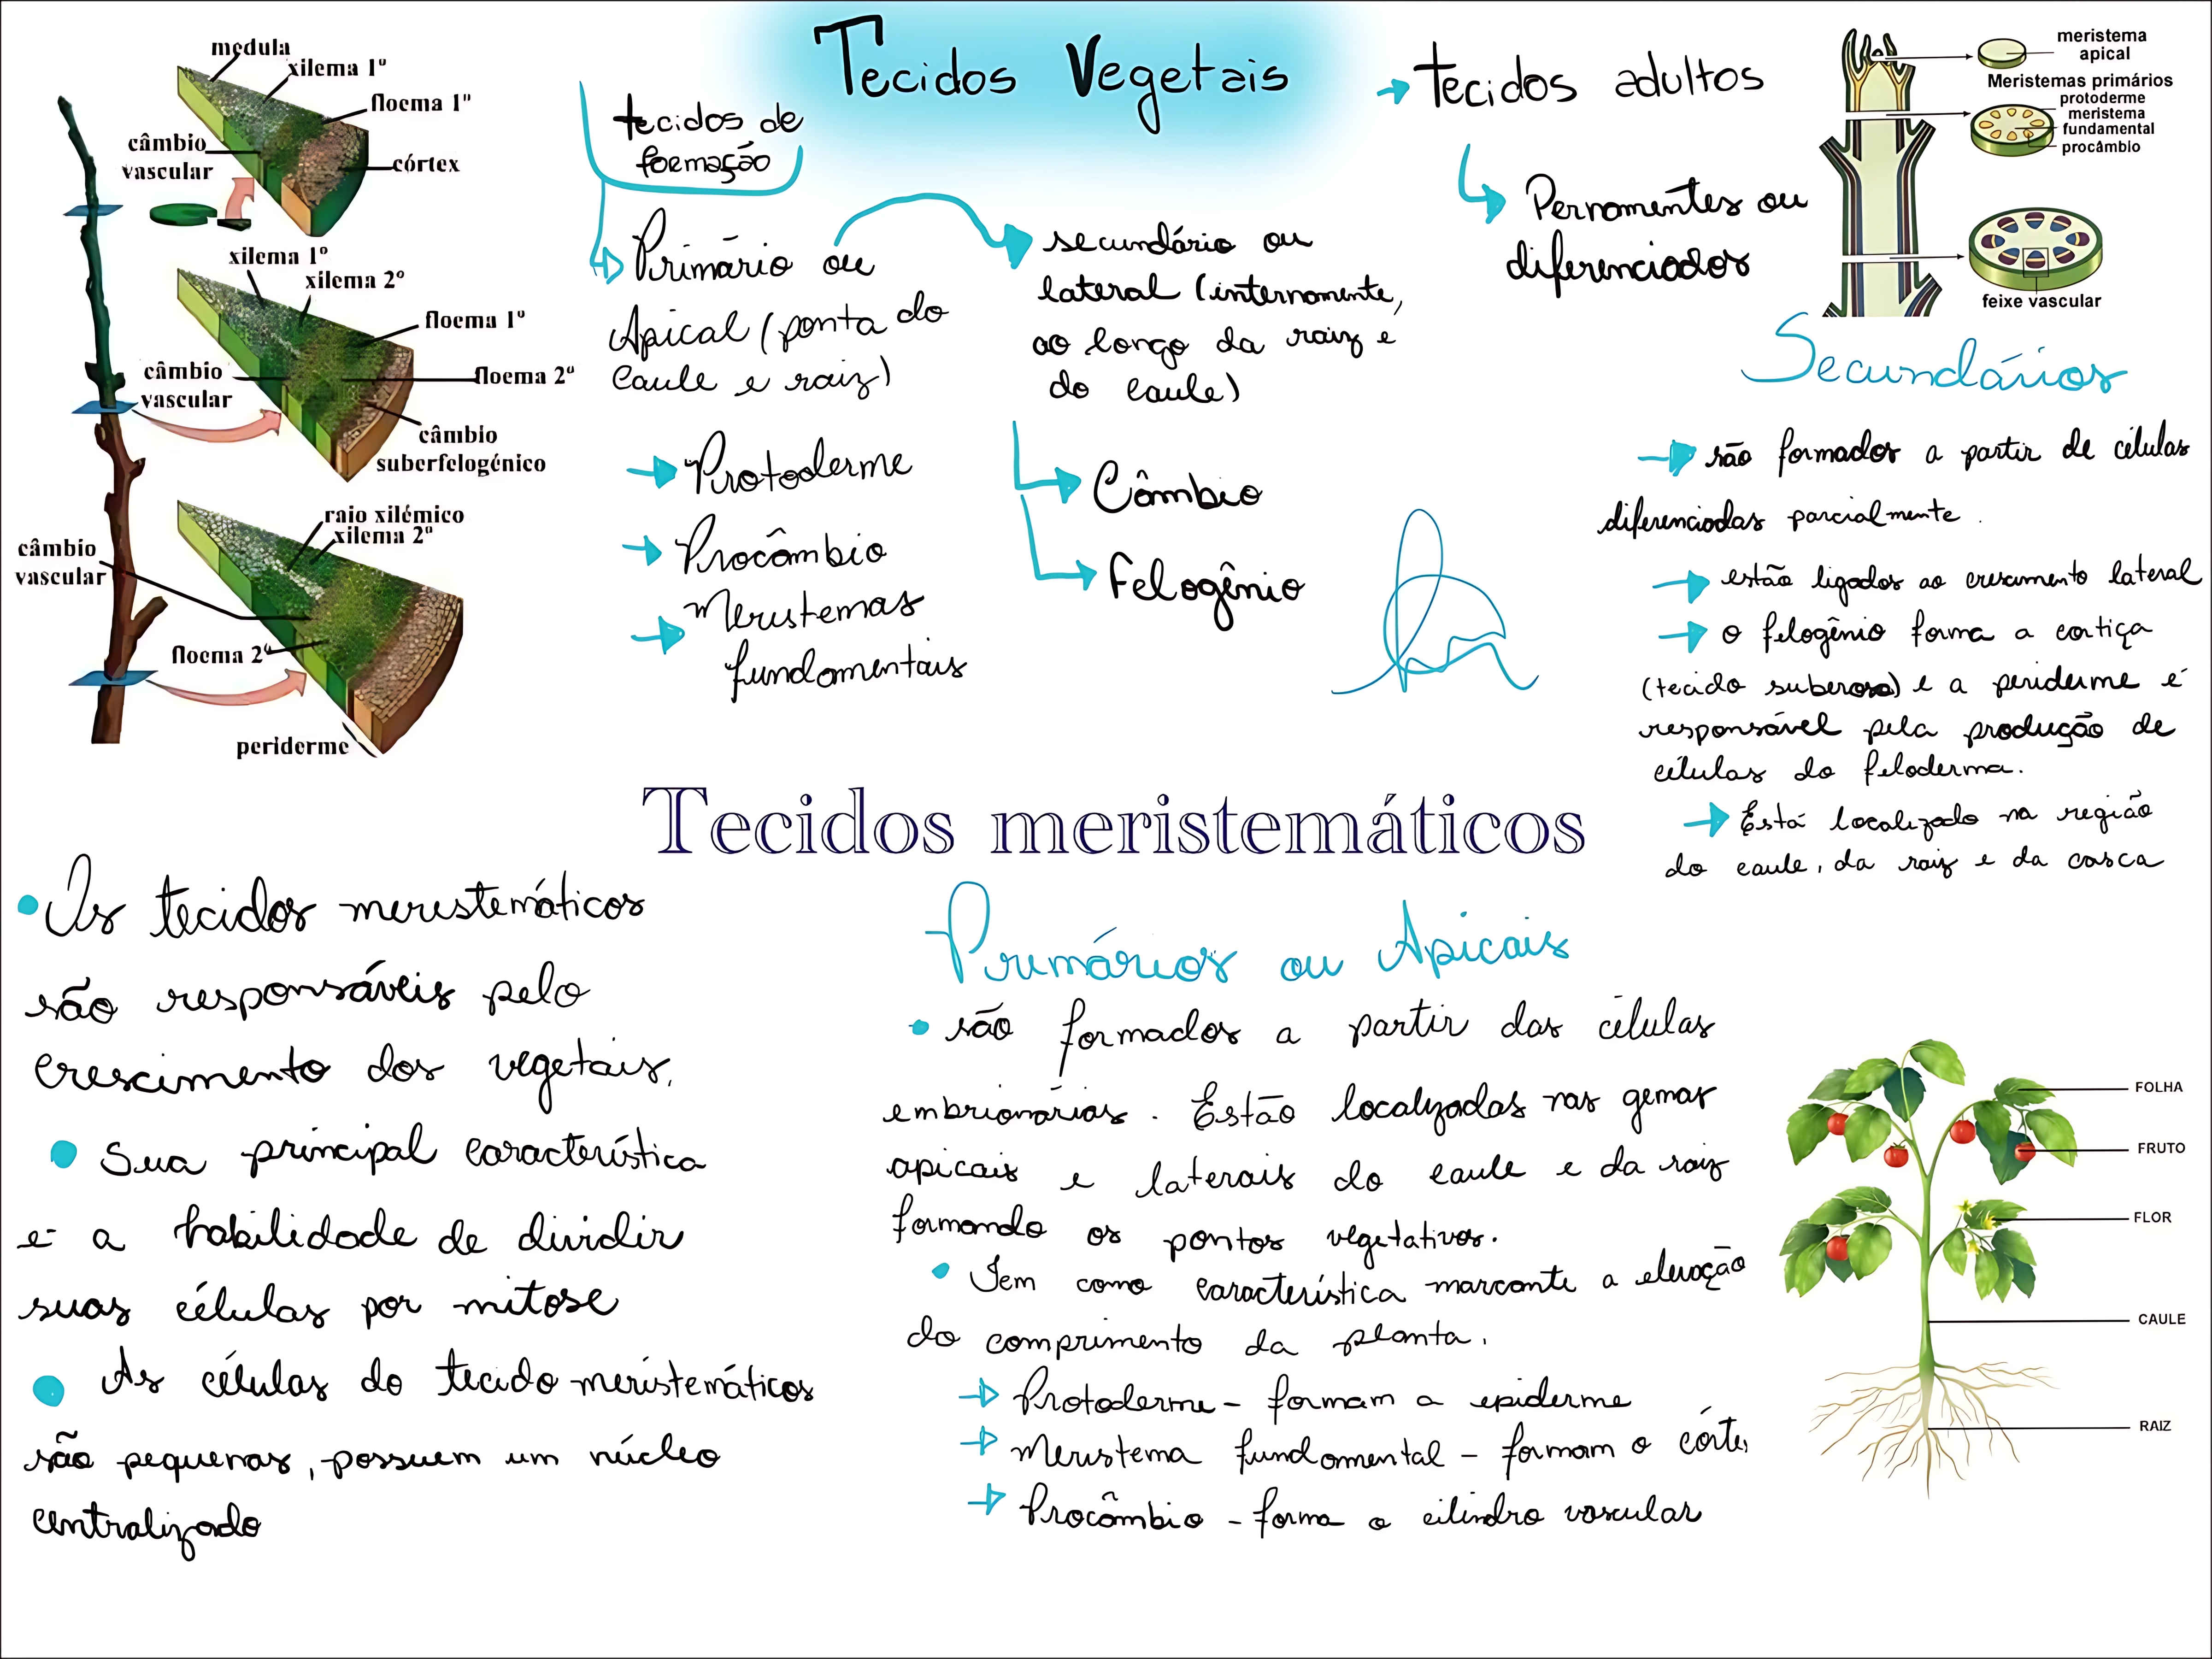 Tecidos Vegetais
tecidos de
formação
Primário ou
Apical (ponta do
caule e raiz)
Protoderme
Procâmbio
Meristemas
fundamentais
secundário ou
lateral (internamente,
ao longo da raiz e
do caule)
Câmbio
Felogênio
tecidos adultos
Pernamentes ou
diferenciados
medula
xilema 1º
floema 1º
câmbio
vascular
córtex
xilema 1º
xilema 2º
floema 1º
câmbio
vascular
floema 2º
câmbio
suberfelogénico
raio xilémico
xilema 2º
câmbio
vascular
floema 2º
periderme
meristema
apical
Meristemas primários
protoderme
meristema
fundamental
procâmbio
feixe vascular
Secundários
são formados a partir de células
diferenciadas parcialmente.
estão ligados ao crescimento lateral
o felogênio forma a cortiça
(tecido suberoso) e a periderme é
responsável pela produção de
células do feloderma.
Está localizado na região
do caule, da raiz e da casca
Tecidos meristemáticos
Os tecidos meristemáticos
são responsáveis pelo
crescimento dos vegetais.
Sua principal característica
é a habilidade de dividir
suas células por mitose
As células do tecido meristemáticos
são pequenas, possuem um núcleo
centralizado
Primários ou Apicais
são formados a partir das células
embrionárias. Estão localizadas nas gemas
apicais e laterais do caule e da raiz
formando os pontos vegetativos.
Tem como característica marcante a elevação
do comprimento da planta.
Protoderme - formam a epiderme
Meristema fundamental - formam o córte,
Procâmbio - forma o cilindro vascular
FOLHA
FRUTO
FLOR
CAULE
RAIZ